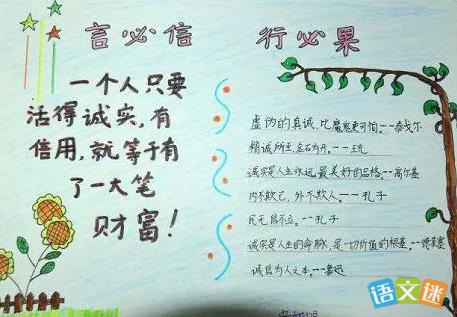 言必信 行必果
一个人只要
活得诚实,有
信用,就等于有
了一大笔
财富!
虚伪的真诚,比魔鬼更可怕。--泰戈尔
精诚所至,金石为开。--王充
诚实是人生永远最美好的品格。--高尔基
内不欺己,外不欺人。--孔子
民无信不立。--孔子
诚实是人生的命脉,是一切价值的根基。--德莱塞
诚信为人之本。--鲁迅
语文迷